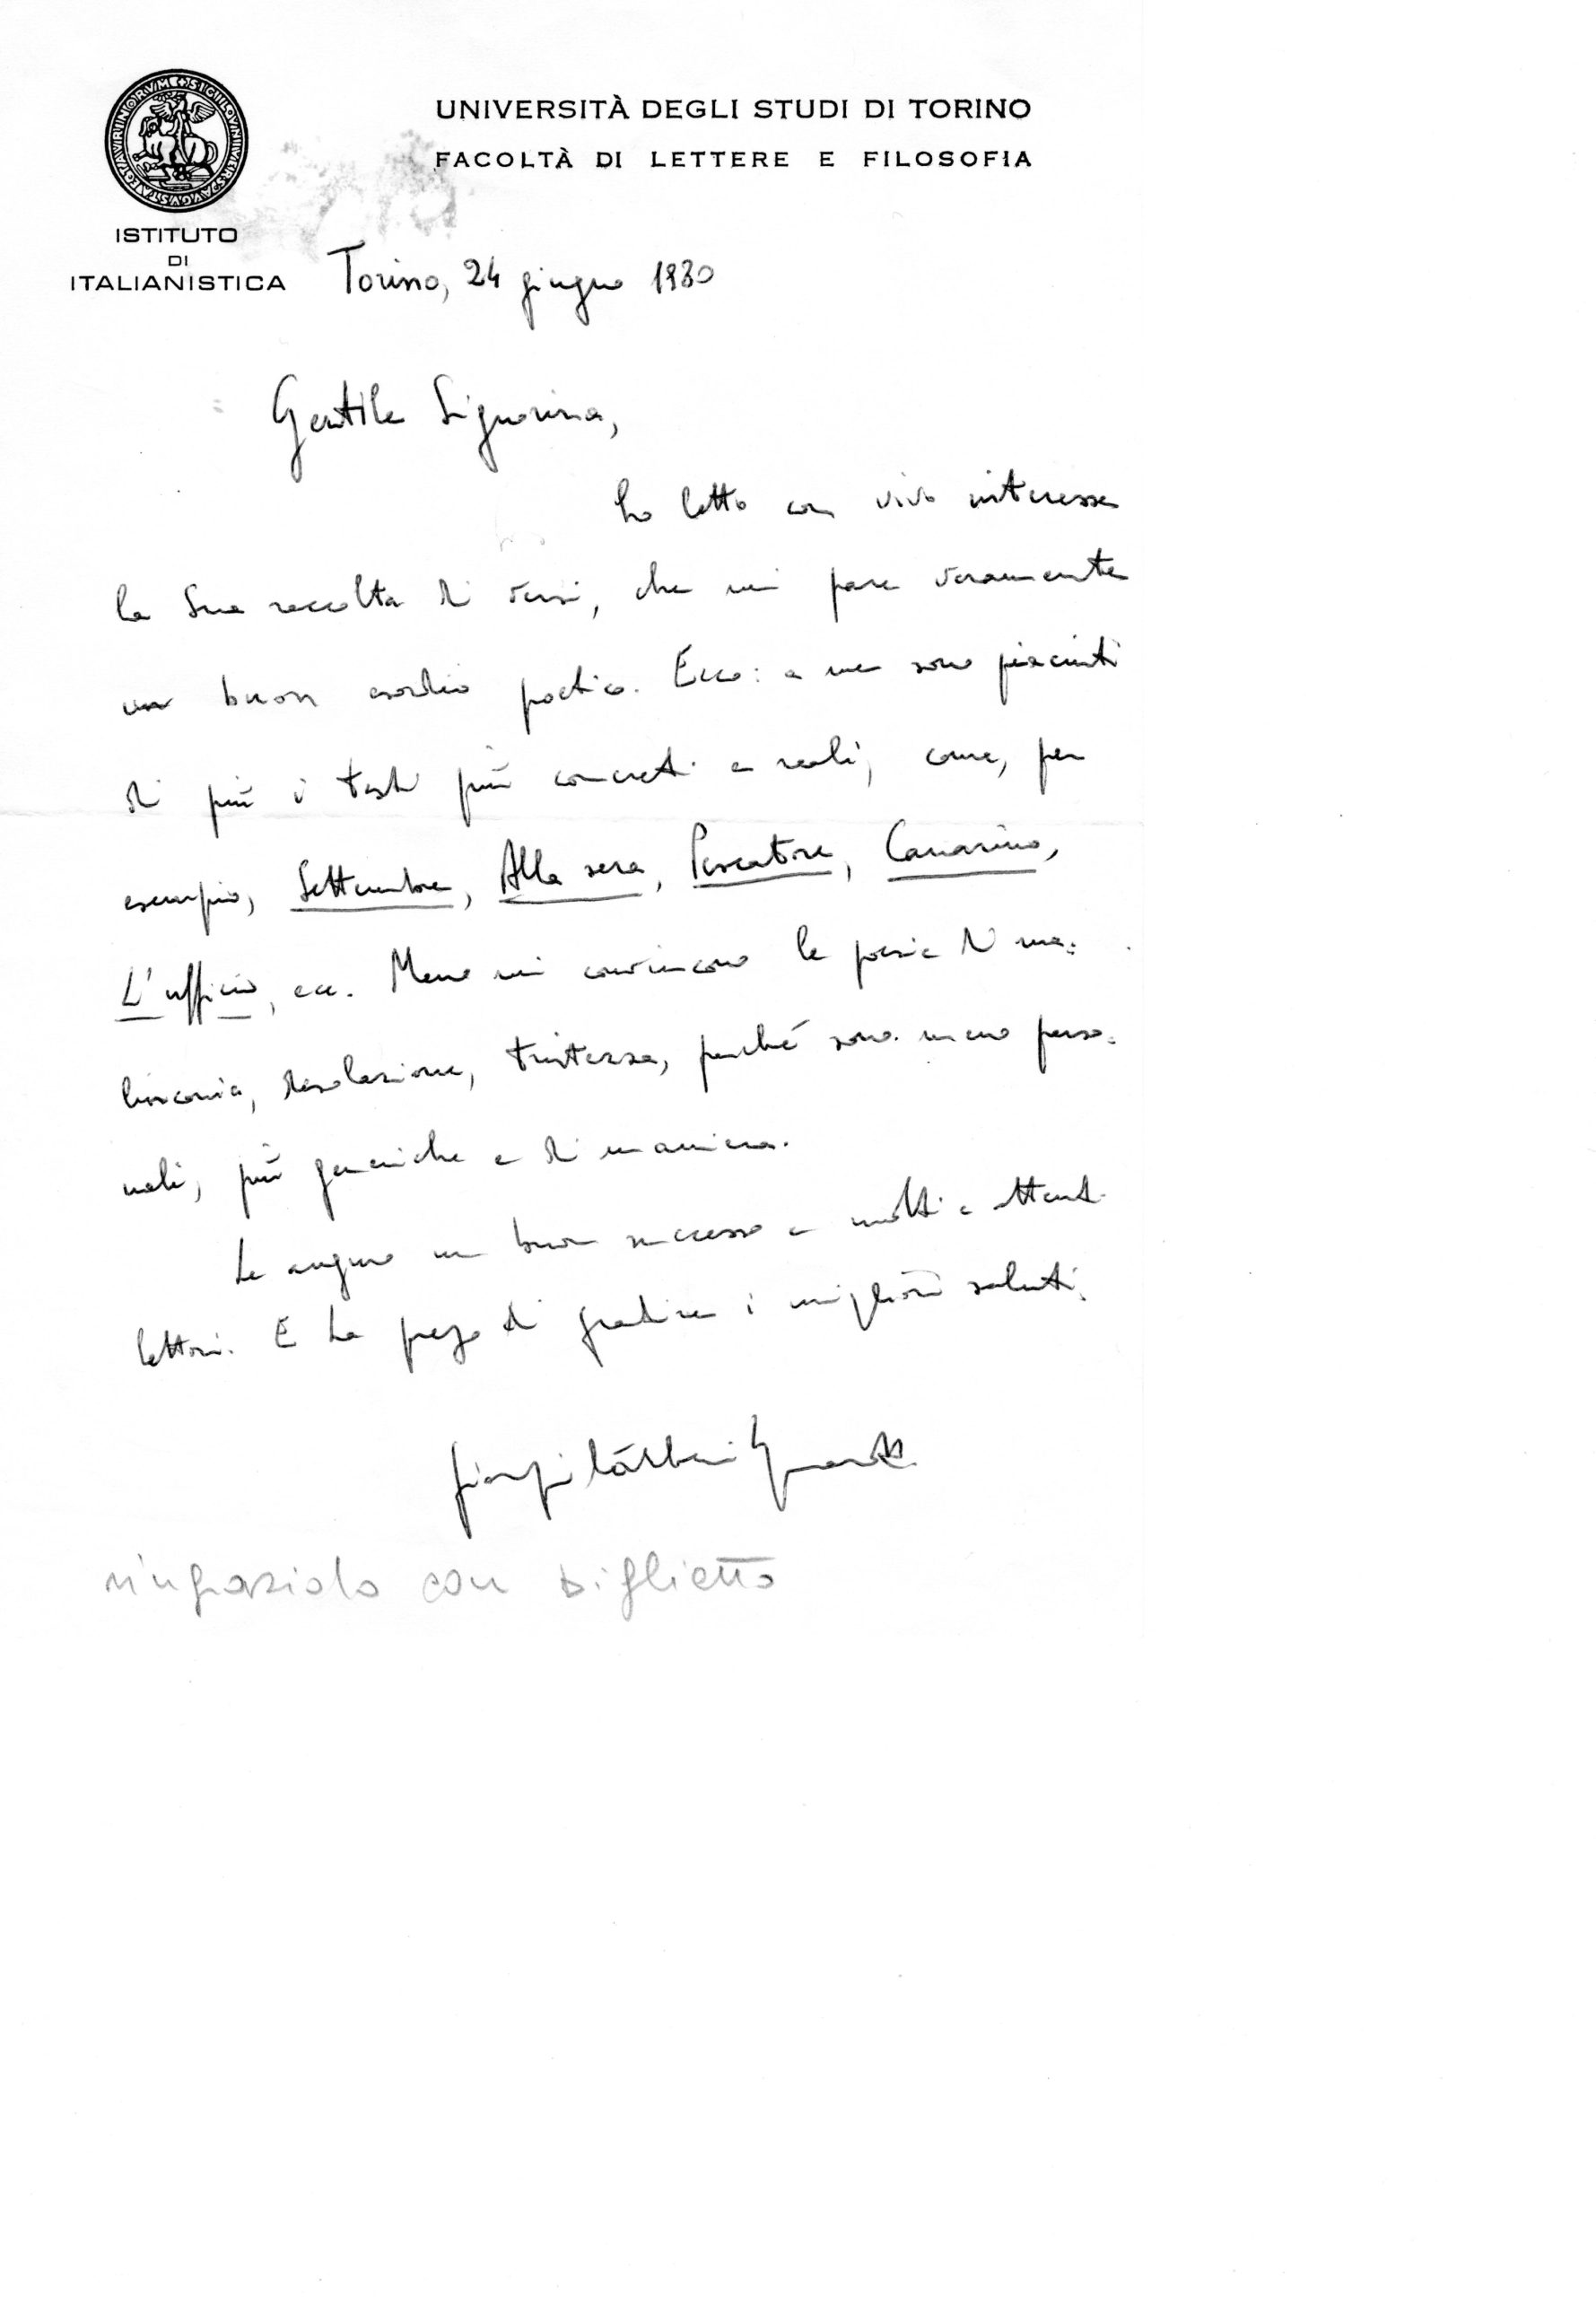 UNIVERSITÀ DEGLI STUDI DI TORINO
FACOLTÀ DI LETTERE E FILOSOFIA
ISTITUTO
DI
ITALIANISTICA
Torino, 24 giugno 1980
Gentile Signorina,
ho letto con vivo interesse
la Sua raccolta di versi, che mi pare veramente
un buon esordio poetico. Ecco: a me sono piaciuti
di più i testi più concreti e reali, come, per
esempio, Settembre, Alla sera, Pescatore, Canarino,
L'ufficio, ecc. Meno mi convincono le poesie di ma=
linconia, desolazione, tristezza, perché sono meno perso=
nali, più generiche e di maniera.
Le auguro un buon successo e molti e attenti
lettori. E La prego di gradire i migliori saluti.
ringraziato con biglietto